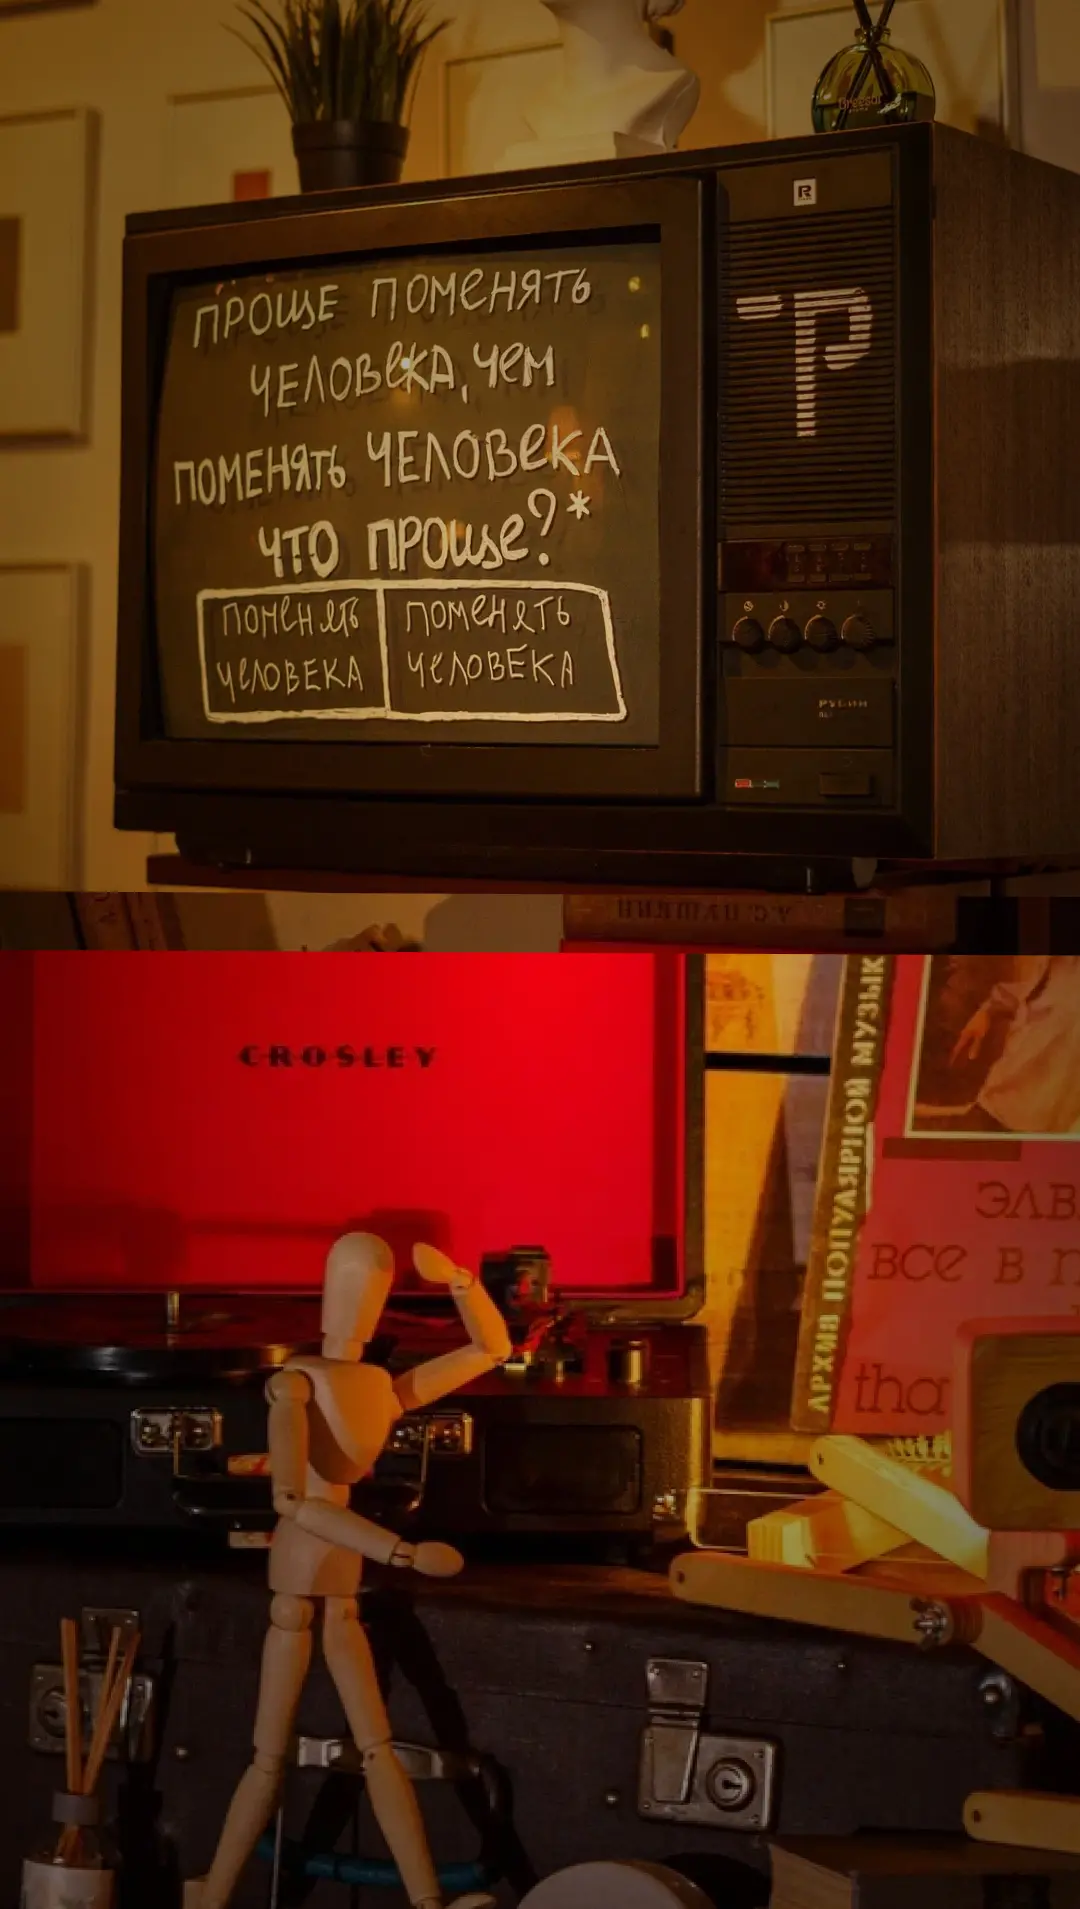 Breesal
R
ПРОЩЕ ПОМЕНЯТЬ
ЧЕЛОВЕКА, ЧЕМ
ПОМЕНЯТЬ ЧЕЛОВЕКА
ЧТО ПРОЩЕ?*
ПОМЕНЯТЬ
ЧЕЛОВЕКА
ПОМЕНЯТЬ
ЧЕЛОВЕКА
-Р
РУБИН
А.С.ПУШКИН
CROSLEY
АРХИВ ПОПУЛЯРНОЙ МУЗЫК
ЭЛВ
ВСЕ В П
tha